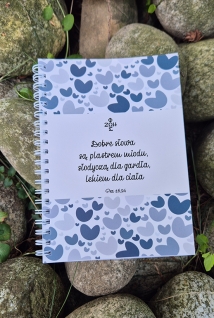 Dobre słowa
są plastrem miodu,
słodyczą dla gardła,
lekiem dla ciała